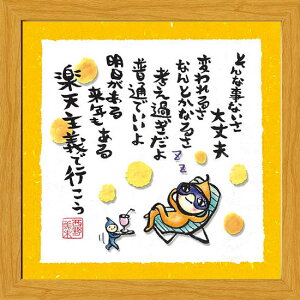 そんな事ないさ
大丈夫
変われるさ
なんとかなるさ
考え過ぎだよ
普通でいいよ
明日がある
来年もある
楽天主義で行こう
z z